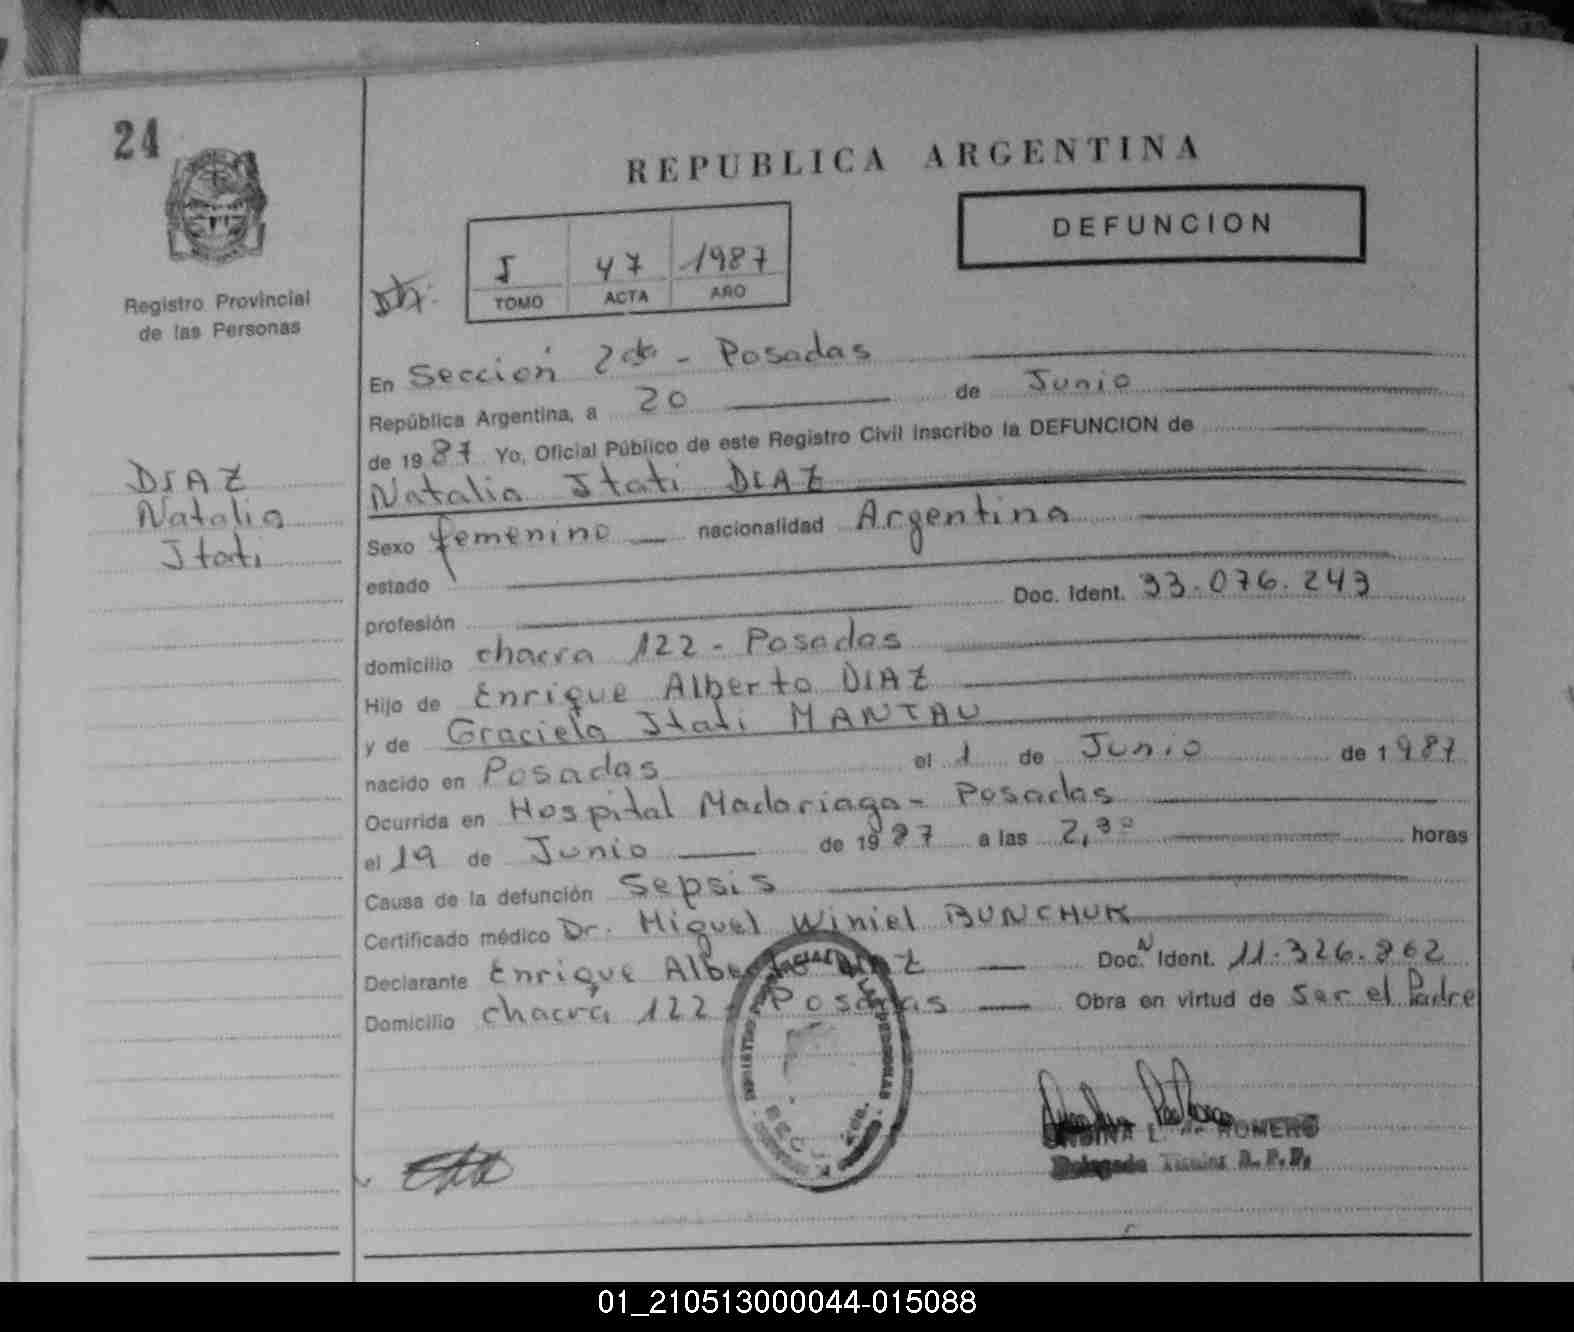 24
REPUBLICA ARGENTINA
DEFUNCION
I 47 1987
TOMO ACTA AÑO
Registro Provincial
de las Personas
En Sección 2da - Posadas
República Argentina, a 20 de Junio
de 1987 Yo, Oficial Público de este Registro Civil inscribo la DEFUNCION de
DIAZ
Natalia
Itati
Natalia Itati DIAZ
Sexo femenino nacionalidad Argentina
estado
profesión Doc. Ident. 33.076.243
domicilio chacra 122 - Posadas
Hijo de Enrique Alberto DIAZ
y de Graciela Itati
nacido en Posadas el 1 de Junio de 1987
Ocurrida en Hospital Madariaga - Posadas
el 19 de Junio de 1987 a las 2,30 horas
Causa de la defunción Sepsis
Certificado médico Dr. Miguel Winiel BUNCHUK
Declarante Enrique Alberto DIAZ Doc. N Ident. 11.326.862
Domicilio chacra 122 - Posadas Obra en virtud de ser el Padre
REGISTRO PROVINCIAL DE LAS PERSONAS
L. de ROMERO
Delegada Titular R. P. P.
01_210513000044-015088